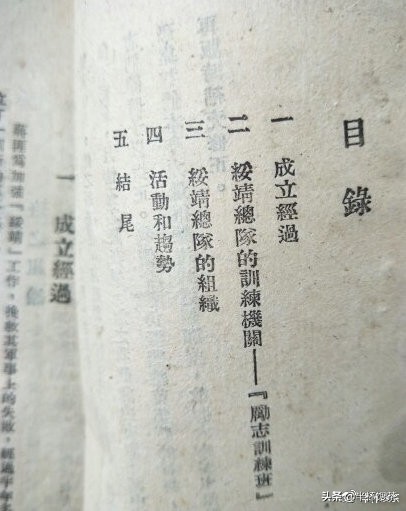 目錄
一 成立經過
二 綏靖總隊的訓練機關——『勵志訓練班』
三 綏靖總隊的組織
四 活動和趨勢
五 結尾
一 成立經過
蔣匪爲加強「綏靖」工作,挽救其軍事上的失敗,經過半年
头条